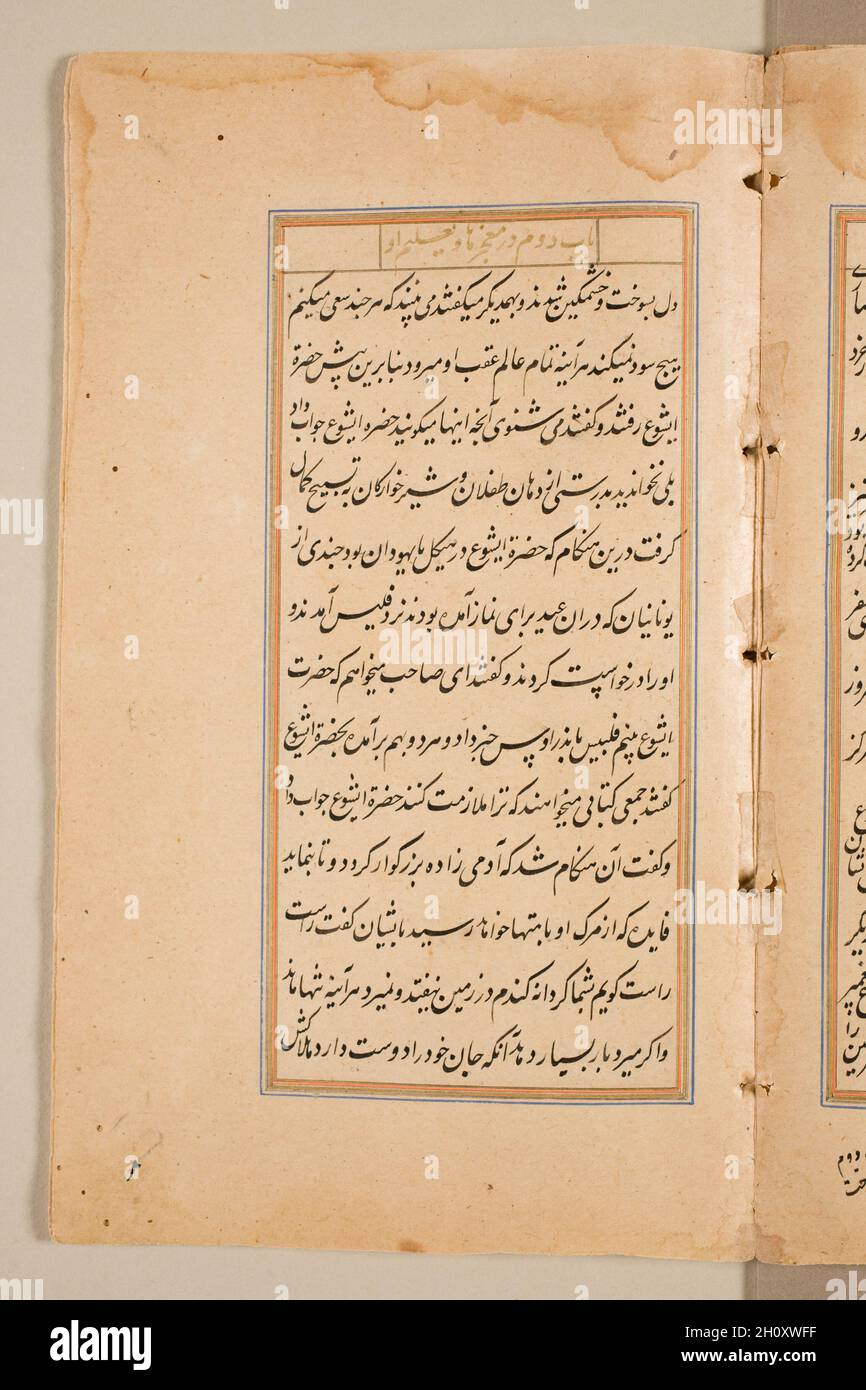 باب دوم در معجزها و تعلیم او
دل بسوخت و خشمکین شدند و بهمدیکر میکفتند می بینید که هر چند سعی میکنیم
هیچ سود نمیکند هر آینه تمام عالم عقب او میرود بنابرین پیش حضرة
ایشوع رفتند و کفتند می شنوی آنچه اینها میکویند حضرة ایشوع جواب داد
بلی نخواندید بدرستی از دهان طفلان و شیر خوارکان به تسبیح کمال
کرفت درین هنکام که حضرة ایشوع در هیکل با یهودان بود چندی از
یونانیان که دران عید برای نماز آمده بودند نزد فلیس آمدند و
او را درخواست کردند و کفتند ای صاحب میخواهم که حضرت
ایشوع بینم فلبیس باندراوس خبر داد و هر دو بهم برآمده بحضرة ایشوع
کفتند جمعی کتابی میخواهند که ترا ملازمت کنند حضرة ایشوع جواب داد
و کفت آن هنکام شد که آدمی زاده بزرکوار کردد و تا بنماید
فایده که از مرک او بامتها خواهد رسید باایشان کفت راست
راست کویم بشما کر دانه کندم در زمین نیفتد و نمیرد هر آینه تنها ماند
و اکر میرد بار بسیار دهد آنکه جان خود را دوست دارد هلاکش
alamy
Image ID: 2H0XWFF
www.alamy.com